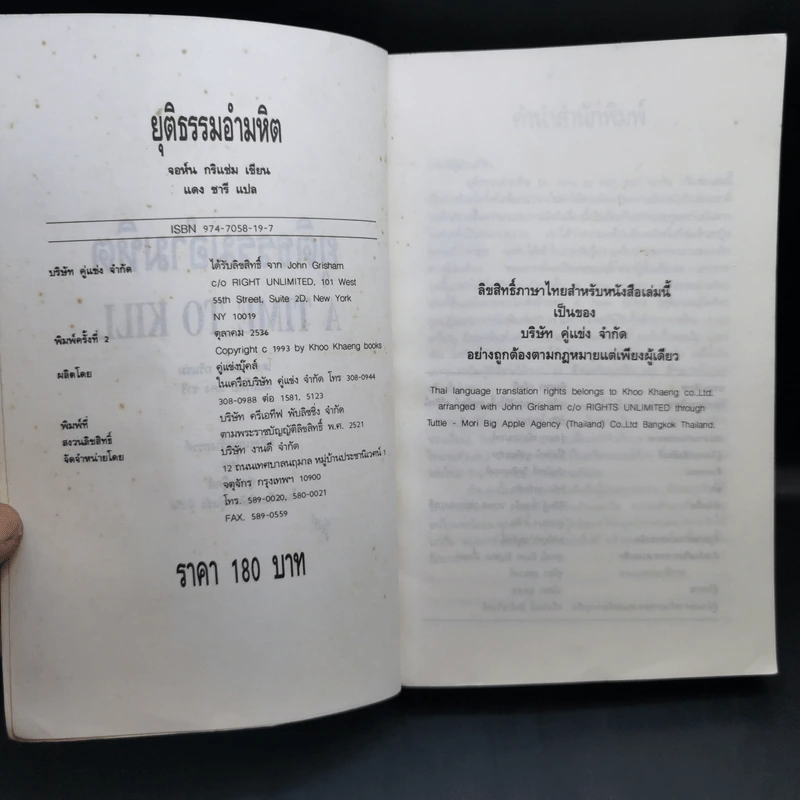 ยุติธรรมอำมหิต
จอห์น กริแช่ม เขียน
แดง ชารี แปล
ISBN 974-7058-19-7
บริษัท คู่แข่ง จำกัด
ได้รับลิขสิทธิ์ จาก John Grisham
c/o RIGHT UNLIMITED, 101 West
55th Street, Suite 2D, New York
NY 10019
พิมพ์ครั้งที่ 2
ตุลาคม 2536
Copyright c 1993 by Khoo Khaeng books
ผลิตโดย
คู่แข่งบุ๊คส์
ในเครือบริษัท คู่แข่ง จำกัด โทร 308-0944
308-0988 ต่อ 1581, 5123
พิมพ์ที่
บริษัท ครีเอทีฟ พับลิชชิ่ง จำกัด
สงวนลิขสิทธิ์
ตามพระราชบัญญัติลิขสิทธิ์ พ.ศ. 2521
จัดจำหน่ายโดย
บริษัท งานดี จำกัด
12 ถนนเทศบาลนฤมาล หมู่บ้านประชานิเวศน์ 1
จตุจักร กรุงเทพฯ 10900
โทร. 589-0020, 580-0021
FAX. 589-0559
ราคา 180 บาท
ลิขสิทธิ์ภาษาไทยสำหรับหนังสือเล่มนี้
เป็นของ
บริษัท คู่แข่ง จำกัด
อย่างถูกต้องตามกฎหมายแต่เพียงผู้เดียว
Thai language translation rights belongs to Khoo Khaeng co.,Ltd.
arranged with John Grisham c/o RIGHTS UNLIMITED through
Tuttle - Mori Big Apple Agency (Thailand) Co.,Ltd Bangkok Thailand.